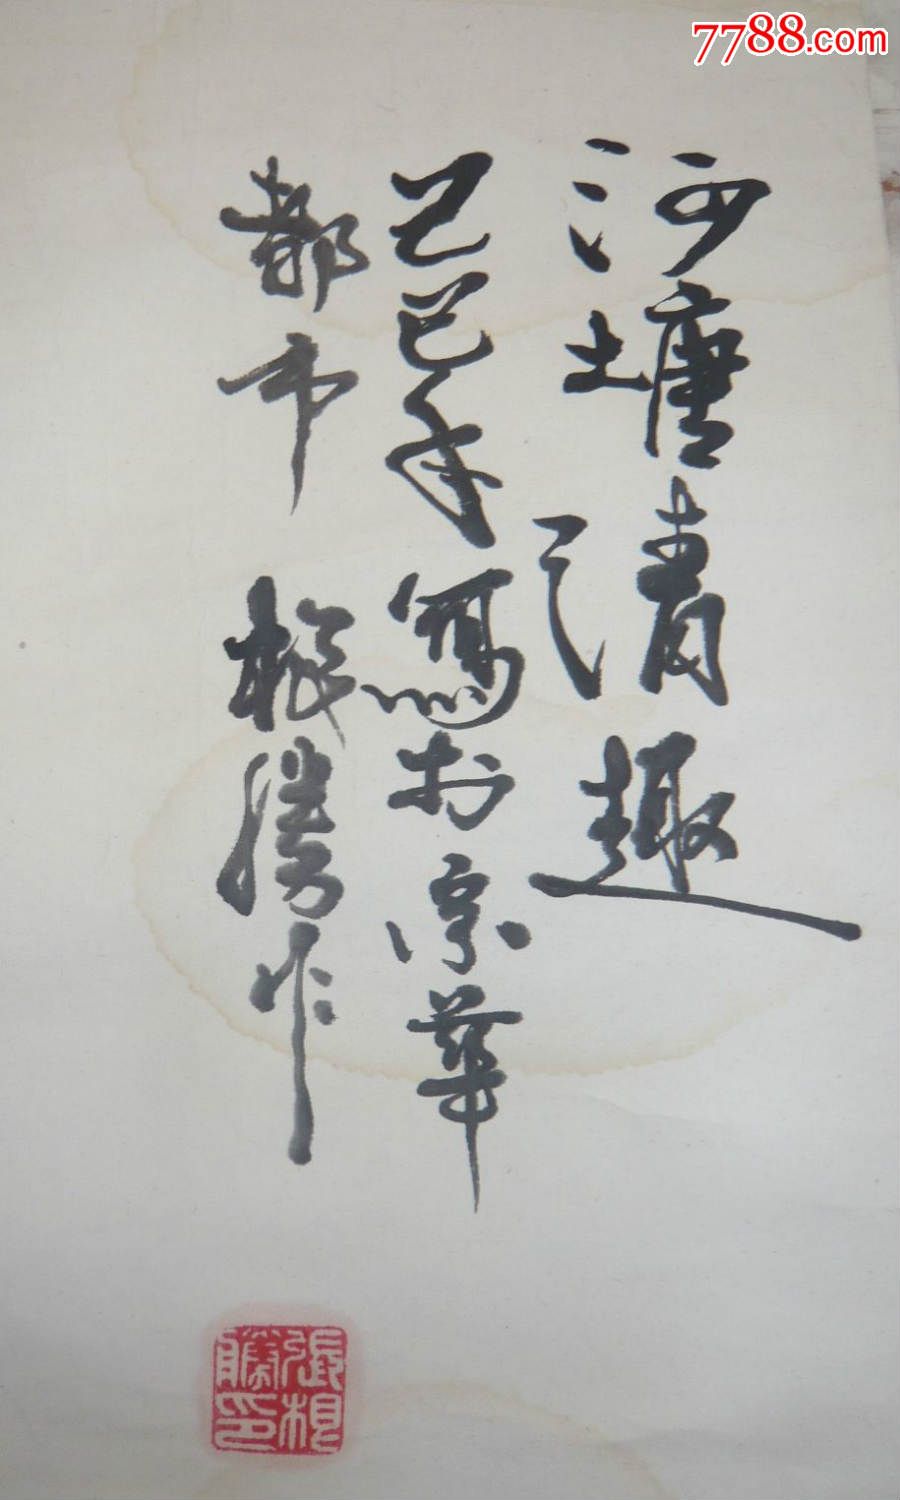 7788.com
河塘清趣
己巳年寫於京華
都市 根勝作
張根勝印